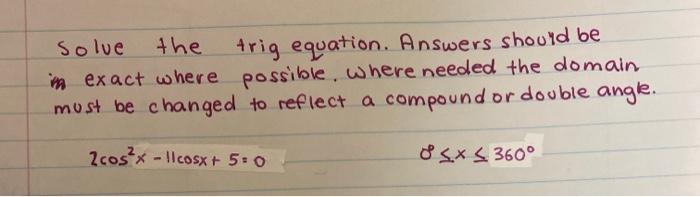 Solve the trig equation. Answers should be
exact where possible. where needed the domain
must be changed to reflect a compound or double angle.
2cos²x - 11cosx + 5 = 0 0° ≤ x ≤ 360°